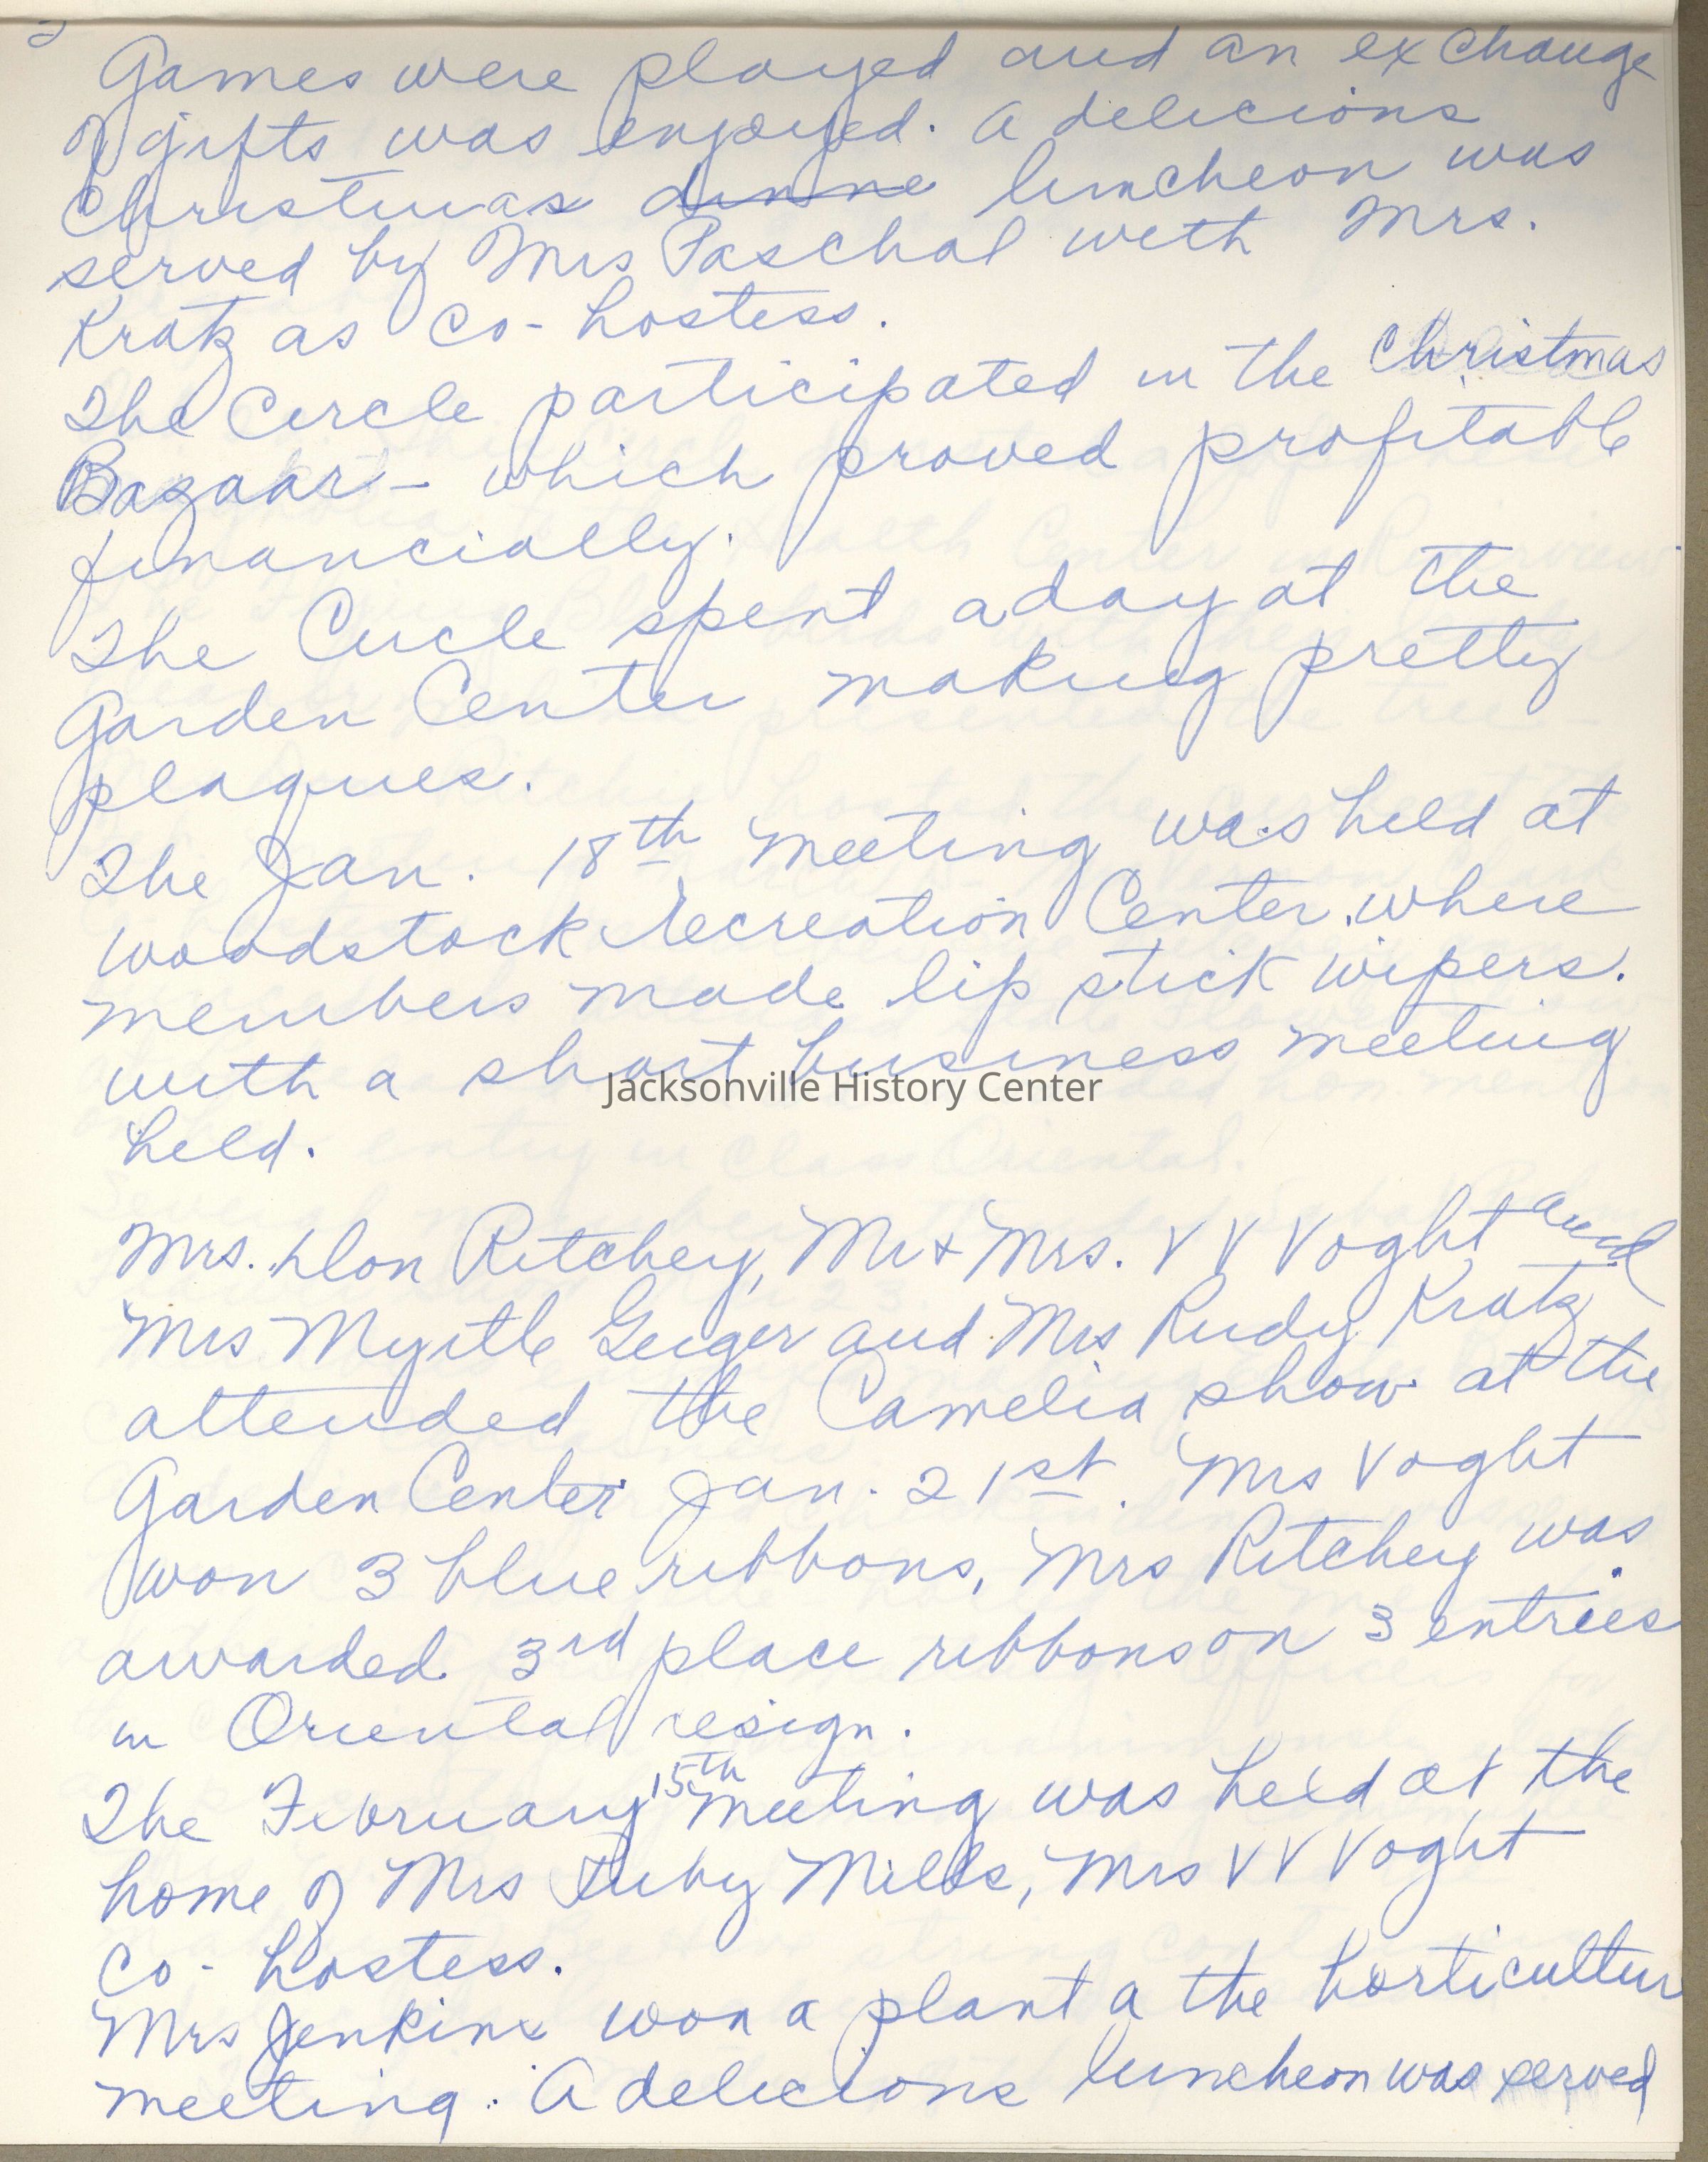 Games were played and an exchange
of gifts was enjoyed. A delicious
Christmas dinne luncheon was
served by Mrs Paschal with Mrs.
Kratz as Co-hostess.
The Circle participated in the Christmas
Bazaar - which proved profitable
financially.
The Circle spent a day at the
Garden Center making pretty
plaques.
The Jan. 18th meeting was held at
Woodstock Recreation Center where
members made lip stick wipers.
with a short business meeting
held.
Jacksonville History Center
Mrs. Don Ritchey, Mr & Mrs. V V Voght and
Mrs Myrtle Geiger and Mrs Rudy Kratz
attended the Camelia show at the
Garden Center Jan. 21st. Mrs Voght
won 3 blue ribbons, Mrs Ritchey was
awarded 3rd place ribbons on 3 entries
in Oriental resign.
The February 15th meeting was held at the
home of Mrs Mills, Mrs V V Voght
Co-hostess.
Mrs Jenkins won a plant a the horticultur
meeting. A delicious luncheon was served